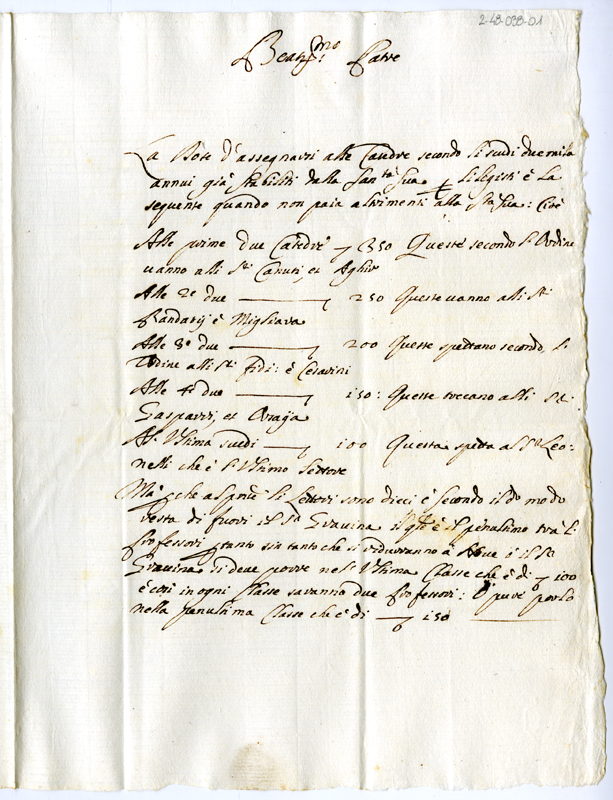 2-48-038-01
Beat.mo Padre
La Dote d'assegnarsi alle Catedre secondo li scudi due mila
annui già stabiliti dalla San.tà Sua p li legisti è la
seguente quando non paia altrimenti alla S.tà Sua: Cioè
Alle prime due Catedre p 350 Queste secondo l'Ordine
vanno alli S.ri Canuti, et
Alle 2e due 250 Queste vanno alli S.ri
è Migliava
Alle 3e due 200 Queste spettano secondo l'
Ordine alli S.ri Fidi: è Cesarini
Alle 4e due 150: Queste toccano alli Sri:
Gasparri, et
Al Ultima Scudi 100 Questa spetta al S.r Leo:
nelli che è l'Ultimo Lettore
Mà p che al pnte li Lettori sono dieci è secondo il do modo
resta di fuori il S.r Gravina il qle è il penultimo tra li
Professori ptanto sin tanto che si riduranno à Nove ò il Sr
Gravina si deve porre nel'Ultima Classe che è di p 100
è così in ogni Classe saranno due Professori: O' pure porlo
nella penultima Classe che è di p 150